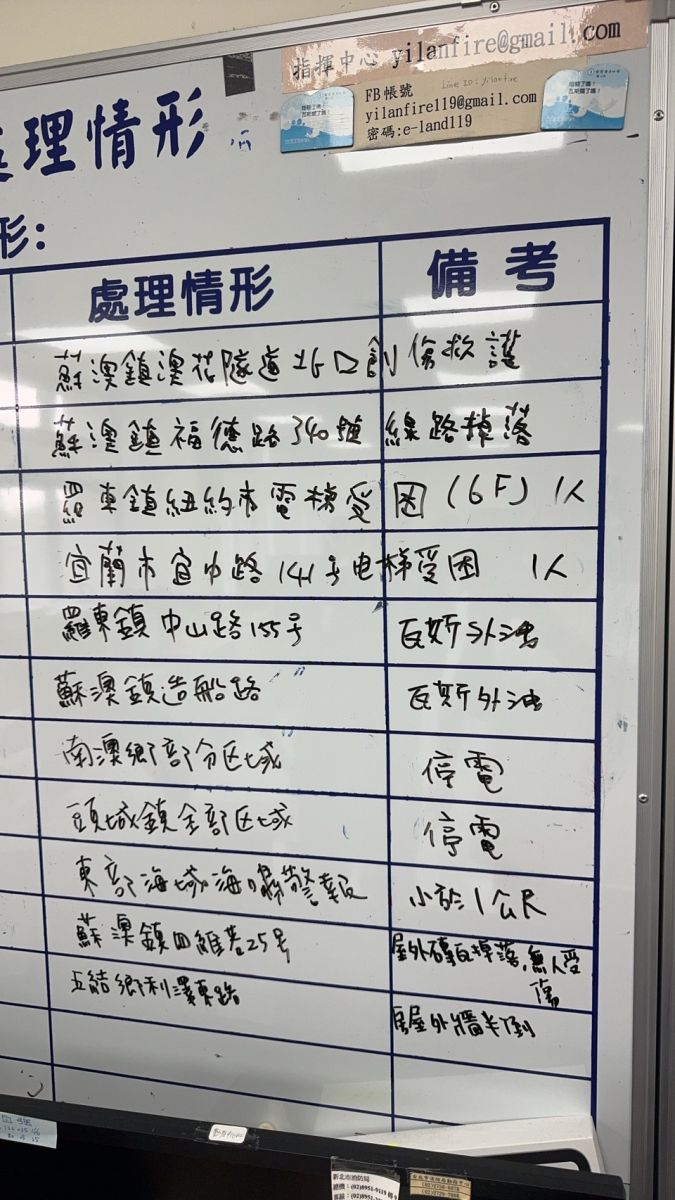 指揮中心 yilanfire@gmail.com
Line ID: yilanfire
FB帳號
yilanfire119@gmail.com
密碼:e-land119
處理情形
形:
處理情形 備考
蘇澳鎮澳花隧道北口創傷救護
蘇澳鎮福德路340號 線路掉落
羅東鎮紐約市電梯受困(6F) 1人
宜蘭市宜中路141号电梯受困 1人
羅東鎮中山路155号 瓦斯外洩
蘇澳鎮造船路 瓦斯外洩
南澳鄉部分区域 停電
頭城鎮全部区域 停電
東部海域海嘯警報 小於1公尺
蘇澳鎮四維巷25号 屋外磚瓦掉落,無人受傷
五結鄉利澤東路 房屋外牆半倒
新北市消防局